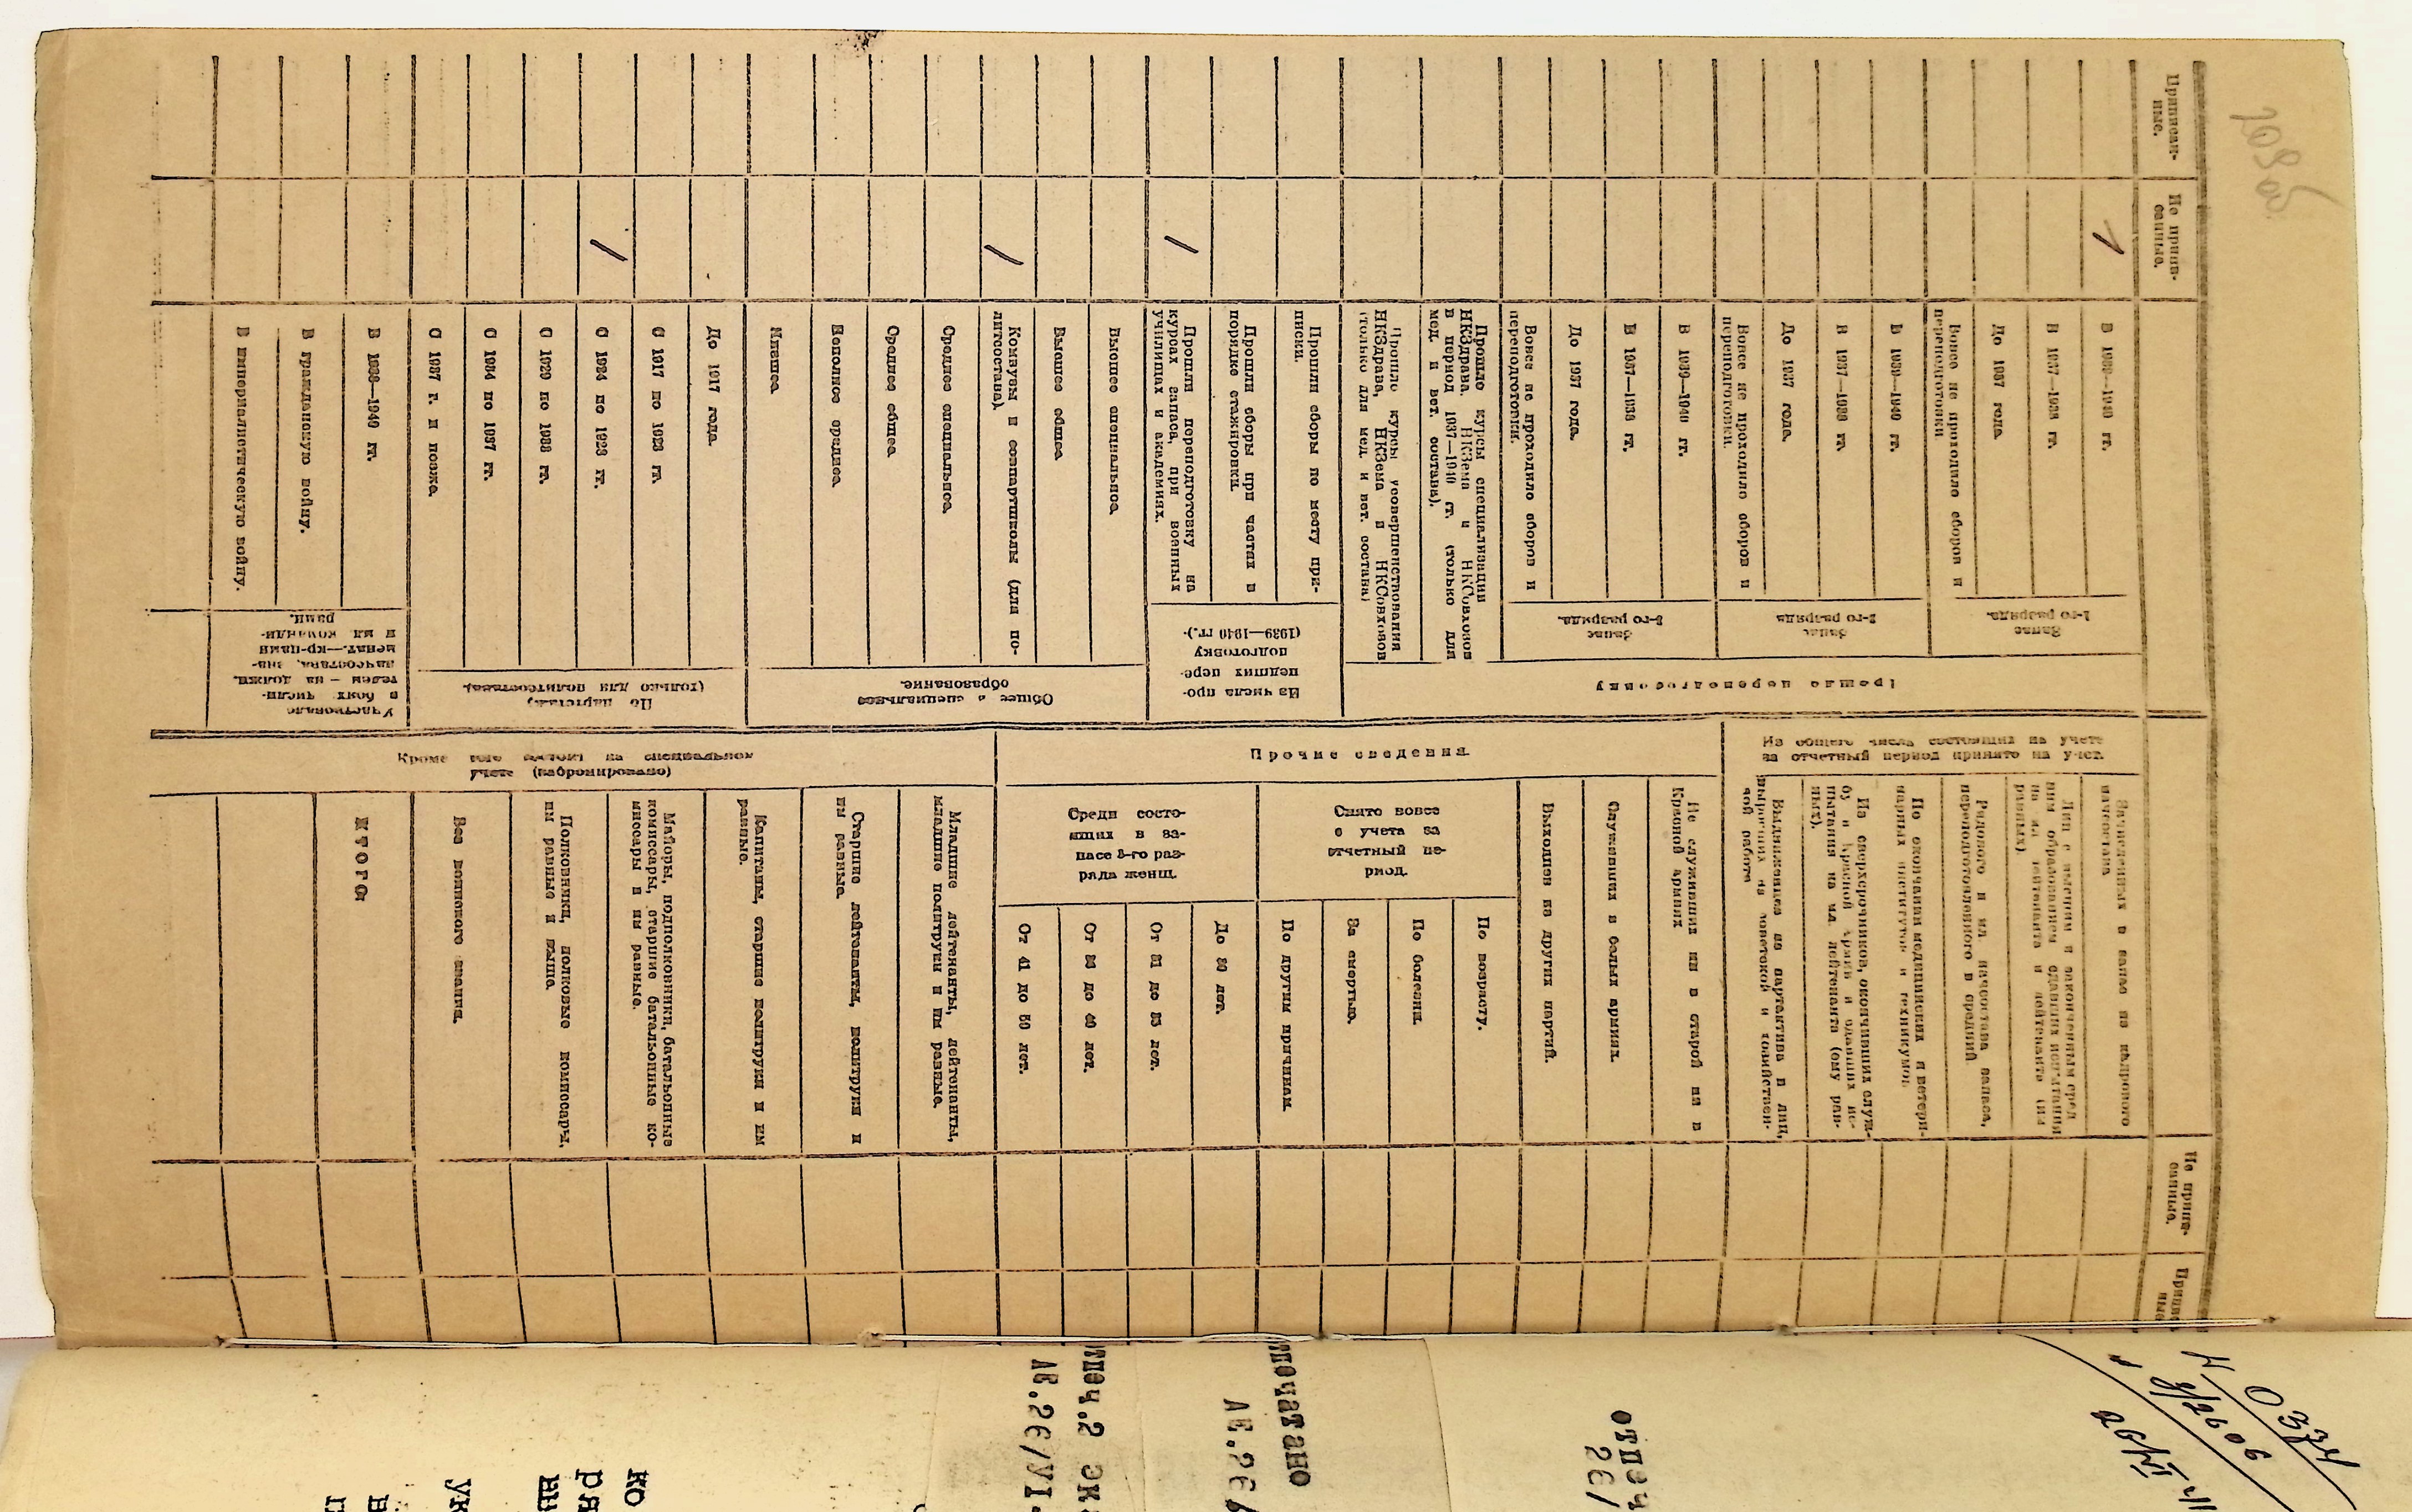 209об
Приписан-
ные.
Не припи-
санные.
1
В 1939—1940 гг.
В 1937—1938 гг.
До 1937 года.
Вовсе не проходило сборов и
переподготовки.
Запас
1-го разряда.
В 1939—1940 гг.
В 1937—1938 гг.
До 1937 года.
Вовсе не проходило сборов и
переподготовки.
Запас
2-го разряда
В 1939—1940 гг.
В 1937—1938 гг.
До 1937 года.
Вовсе не проходило сборов и
переподготовки.
Запас
3-го разряда.
Прошло курсы специализации
НКЗдрава, НКЗема и НКСовхозов
в период 1937—1940 гг. (только для
мед. и вет. состава).
Прошло курсы усовершенствования
НКЗдрава, НКЗема и НКСовхозов
(только для мед. и вет. состава)
Прошло переподготовку
Прошли сборы по месту при-
писки.
Прошли сборы при частях в
порядке стажировки.
/
Прошли переподготовку на
курсах запаса, при военных
училищах и академиях.
Из числа про-
шедших пере-
подготовку
(1939—1940 гг.).
Высшее специальное.
Высшее общее
/
Комвузы и совпартшколы (для по-
литсостава).
Среднее специальное.
Среднее общее.
Неполное среднее.
Низшее.
Общее и специальное
образование.
До 1917 года.
С 1917 по 1923 гг.
/
С 1924 по 1928 гг.
С 1929 по 1933 гг.
С 1934 по 1937 гг.
С 1937 г. и позже.
По партстажу
(только для политсостава).
В 1938—1940 гг.
В гражданскую войну.
В империалистическую войну.
Участвовало
в боях числи-
телем — на должн.
начсостава, зна-
менат.—кр-цами
и мл командир-
рами.
Из общего числа состоящих на учете
за отчетный период принято на учет.
Зачисленных в запас из кадрового
начсостава
Лиц с высшим и законченным сред
ним образованием, сдавших испытания
на мл лейтенанта и лейтенанта (им
равных).
Рядового и мл начсостава запаса,
переподготовленного в средний.
По окончании медицинских и ветери-
нарных институтов и техникумов
Из сверхсрочников, окончивших служ-
бу в Красной Армии и сдавших ис-
пытания на мл лейтенанта (ему рав-
ных).
Выдвиженцев из партактива и лиц,
выросших на советской и хозяйствен-
ной работе
Не припи-
санные.
Прочие сведения.
Не служивших ни в старой ни в
Красной армиях
Служивших в белых армиях.
Выходцев из других партий.
Снято вовсе
с учета за
отчетный пе-
риод.
По возрасту.
По болезни.
За смертью.
По другим причинам.
Среди состо-
ящих в за-
пасе 3-го раз-
ряда женщ.
До 30 лет.
От 31 до 35 лет.
От 36 до 40 лет.
От 41 до 50 лет.
Кроме того состоит на специальном
учете (забронировано)
Младшие лейтенанты, лейтенанты,
младшие политруки и им равные.
Старшие лейтенанты, политруки и
им равные.
Капитаны, старшие политруки и им
равные.
Майоры, подполковники, батальонные
комиссары, старшие батальонные ко-
миссары и им равные.
Полковники, полковые комиссары,
им равные и выше.
Без воинского звания.
ИТОГО:
отпеч
26/
печатано
АЕ.26
отпеч.2 экз
АЕ.26/VI.
ко
ря
ни
ук